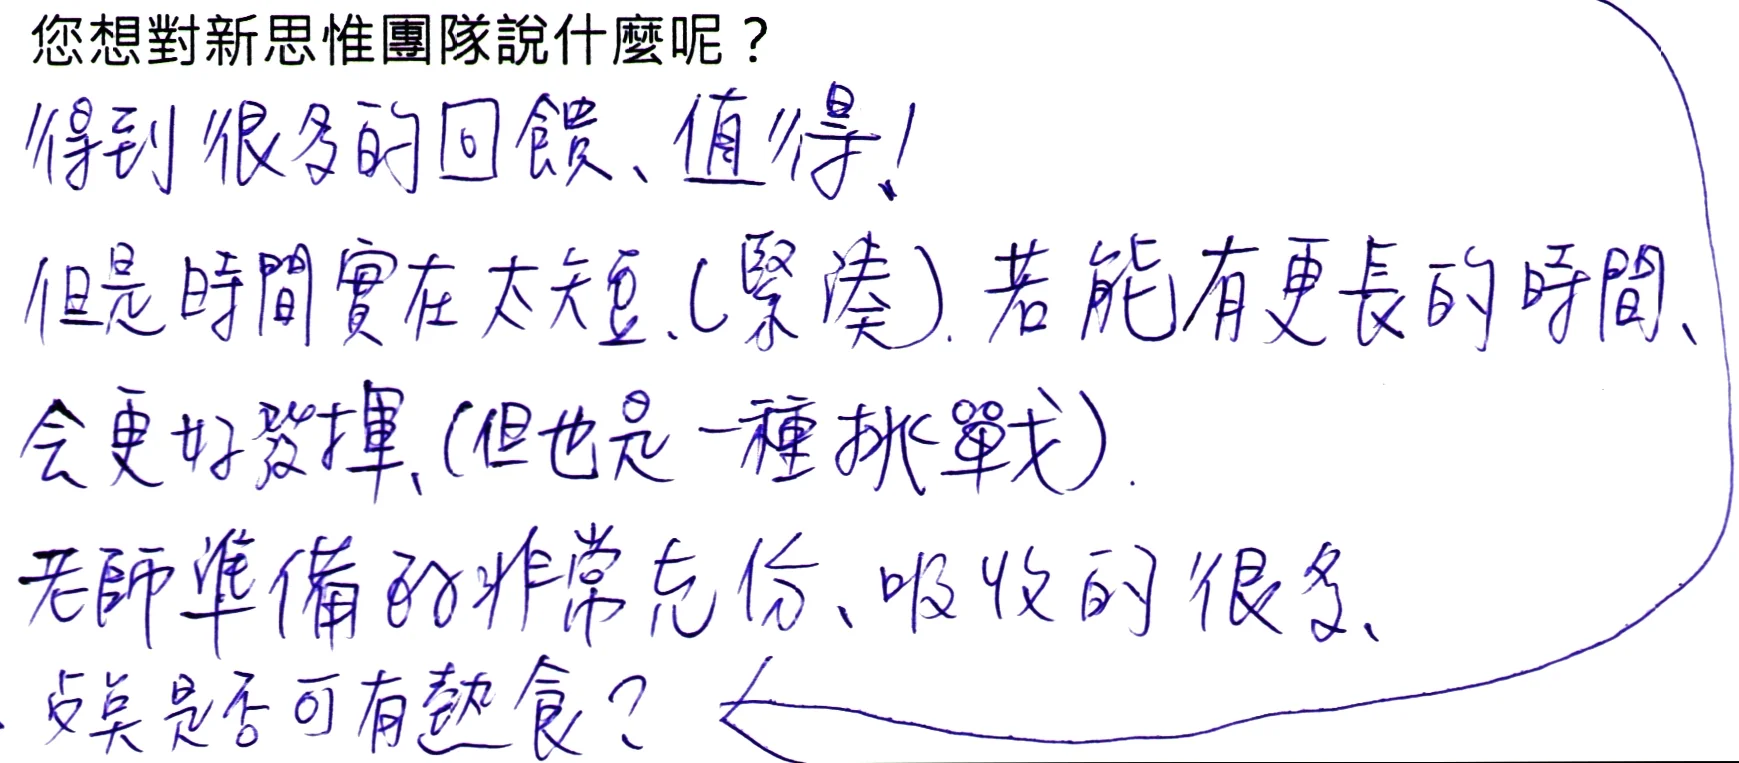 您想對新思惟團隊說什麼呢？
得到很多的回饋、值得！
但是時間實在太短.(緊湊).若能有更長的時間、
会更好發揮、(但也是一種挑戰).
老師準備的非常充份、吸收的很多、
是否可有熱食？